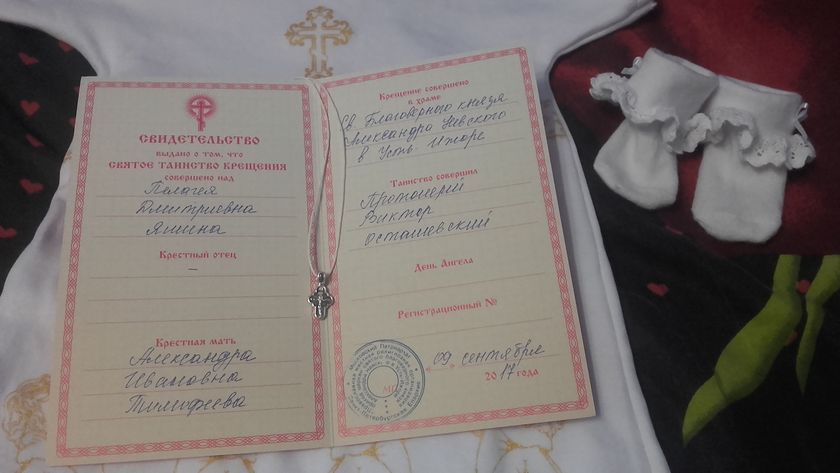 СВИДЕТЕЛЬСТВО
ВЫДАНО О ТОМ, ЧТО
СВЯТОЕ ТАИНСТВО КРЕЩЕНИЯ
СОВЕРШЕНО НАД
Пелагея
Дмитриевна
Яшина
КРЕСТНЫЙ ОТЕЦ
–
КРЕСТНАЯ МАТЬ
Александра
Ивановна
Тимофеева
КРЕЩЕНИЕ СОВЕРШЕНО
В ХРАМЕ
Св Благоверного князя
Александра Невского
в Усть-Ижоре
ТАИНСТВО СОВЕРШИЛ
Протоиерей
Виктор
Осташевский
ДЕНЬ АНГЕЛА
РЕГИСТРАЦИОННЫЙ №
Московский Патриархат
«09» сентября
2017 ГОДА